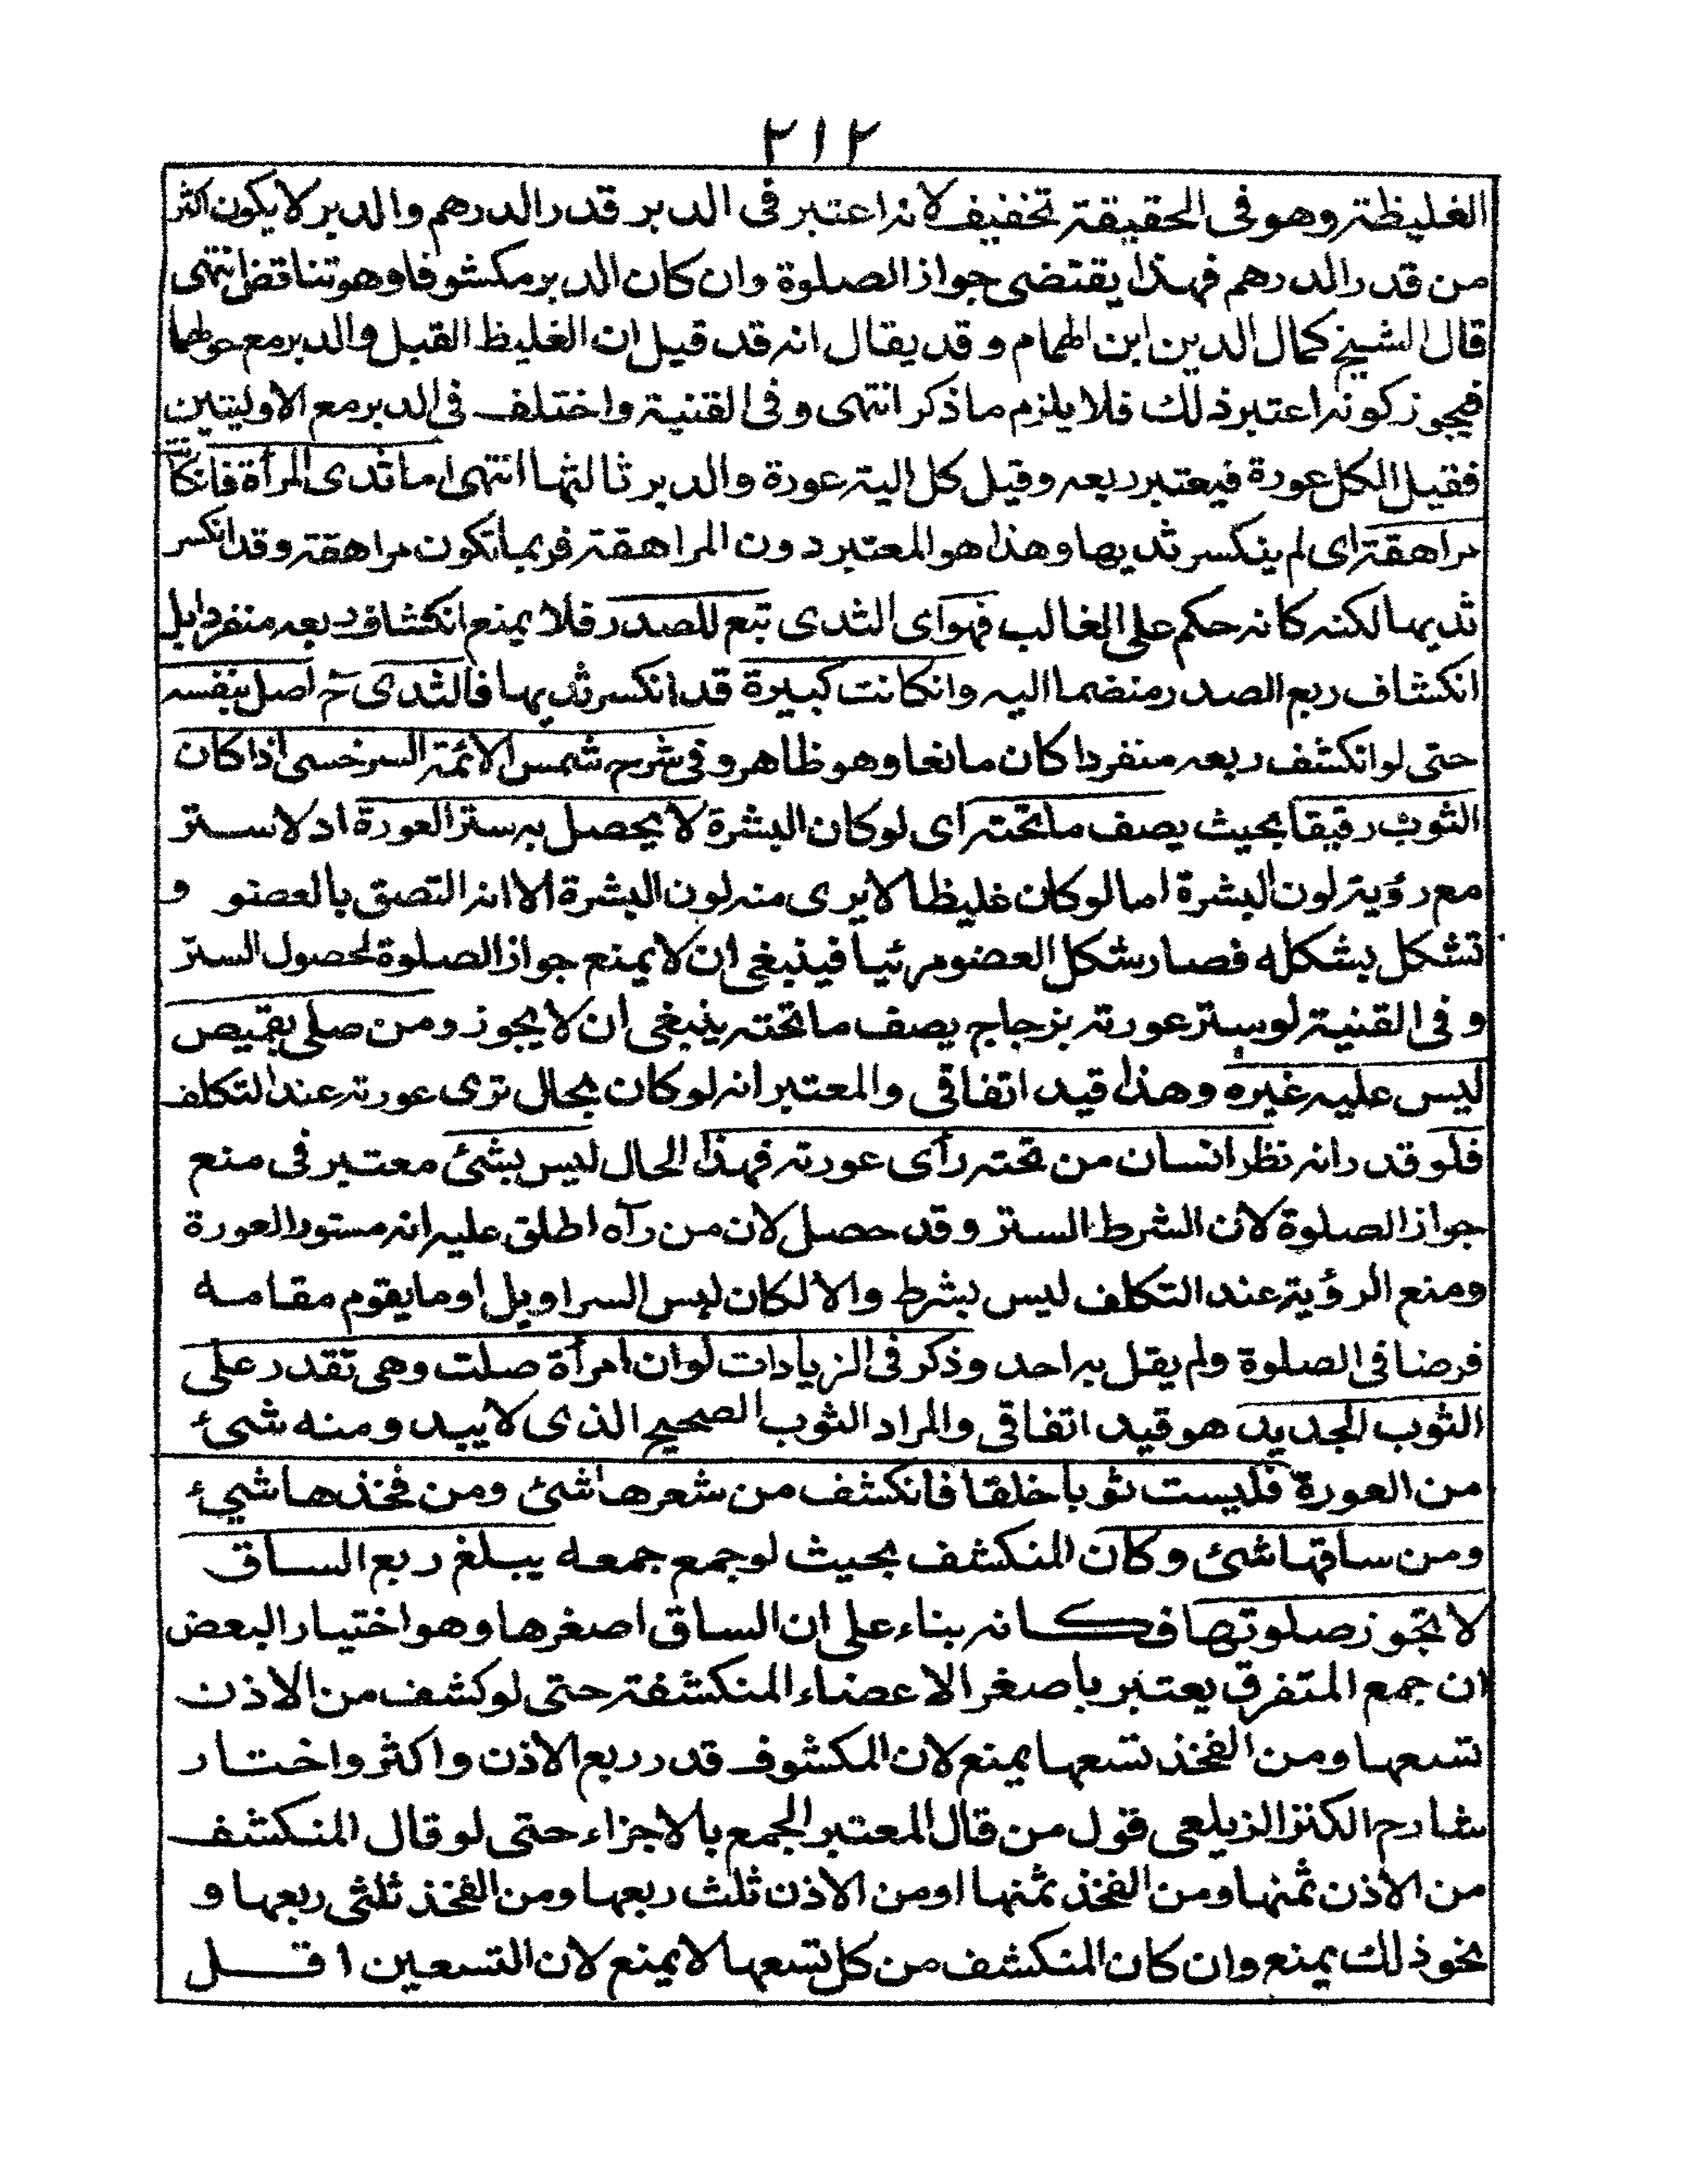 ٢١٢
الغليظة وهو فى الحقيقة تخفيف لانه اعتبر فى الدبر قدر الدرهم والدبر لا يكون اكثر
من قدر الدرهم فهذا يقتضى جواز الصلوة وان كان الدبر مكشوفا وهو تناقض انتهى
قال الشيخ كمال الدين ابن الهمام وقد يقال انه قد قيل ان الغليظ القبل والدبر مع حولهما
فيجوز كونه اعتبر ذلك فلا يلزم ما ذكر انتهى وفى القنية واختلف فى الدبر مع الاوليتين
فقيل الكل عورة فيعتبر ربعه وقيل كل الية عورة والدبر ثالثها انتهى اما ثدى المرأة فان كانت
مراهقة اى لم ينكسر ثديها وهذا هو المعتبر دون المراهقة فربما تكون مراهقة وقد انكسر
ثديها لكنه كانه حكم على الغالب فهو اى الثدى تبع للصدر فلا يمنع انكشاف ربعه منفردا بل
انكشاف ربع الصدر منضما اليه وان كانت كبيرة قد انكسر ثديها فالثدى ح اصل بنفسه
حتى لو انكشف ربعه منفردا كان مانعا وهو ظاهر وفى شرح شمس الائمة السرخسى اذا كان
الثوب رقيقا بحيث يصف ما تحته اى لو كان البشرة لا يحصل به ستر العورة اد لا ستر
مع رؤية لون البشرة اما لو كان غليظا لا يرى منه لون البشرة الا انه التصق بالعضو و
تشكل بشكله فصار شكل العضو مرئيا فينبغى ان لا يمنع جواز الصلوة لحصول الستر
وفى القنية لو ستر عورته بزجاج يصف ما تحته ينبغى ان لا يجوز ومن صلى بقميص
ليس عليه غيره وهذا قيد اتفاقى والمعتبر انه لو كان بحال ترى عورته عند التكلف
فلو قدر انه نظر انسان من تحته رأى عورته فهذا الحال ليس بشئ معتبر فى منع
جواز الصلوة لان الشرط الستر وقد حصل لان من رآه اطلق عليه انه مستور العورة
ومنع الرؤية عند التكلف ليس بشرط والا لكان لبس السراويل او ما يقوم مقامه
فرضا فى الصلوة ولم يقل به احد وذكر فى الزيادات لو ان امرأة صلت وهى تقدر على
الثوب الجديد هو قيد اتفاقى والمراد الثوب الصحيح الذى لا يبدو منه شىء
من العورة فلبست ثوبا خلقا فانكشف من شعرها شئ ومن فخذها شيء
ومن ساقها شئ وكان المنكشف بحيث لو جمع جمعه يبلغ ربع الساق
لا تجوز صلوتها فكانه بناء على ان الساق اصغرها وهو اختيار البعض
ان جمع المتفرق يعتبر باصغر الاعضاء المنكشفة حتى لو كشف من الاذن
تسعها ومن الفخذ تسعها يمنع لان المكشوف قدر ربع الاذن واكثر واختار
شارح الكنز الزيلعى قول من قال المعتبر الجمع بالاجزاء حتى لو قال المنكشف
من الاذن ثمنها ومن الفخذ ثمنها او من الاذن ثلث ربعها ومن الفخذ ثلثى ربعها و
نحو ذلك يمنع وان كان المنكشف من كل تسعها لا يمنع لان التسعين اقل